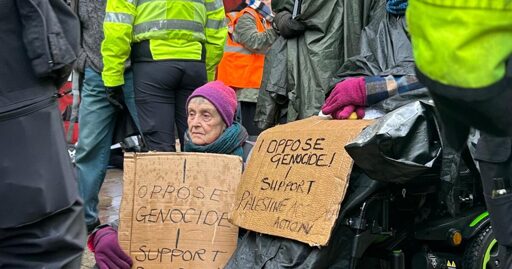 I
OPPOSE
GENOCIDE
I
SUPPORT
I OPPOSE
GENOCIDE!
I
SUPPORT
PALESTINE
ACTION